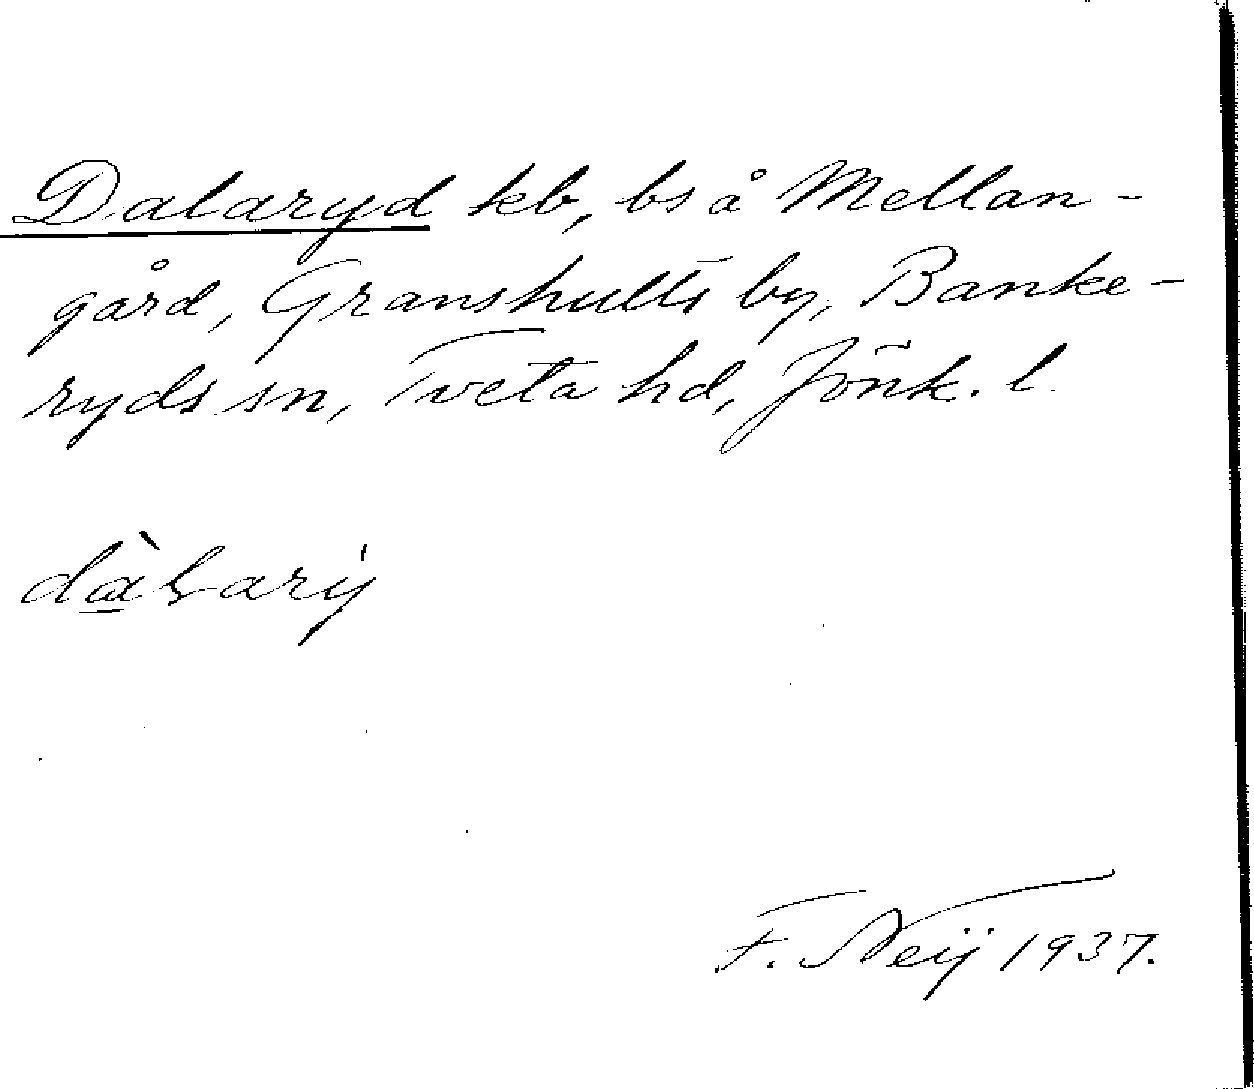 Dalaryd kb, bs å Mellan-
gård, Granshults by, Banke-
ryds sn, Tveta hd, Jönk. l.
F. Neij 1937.